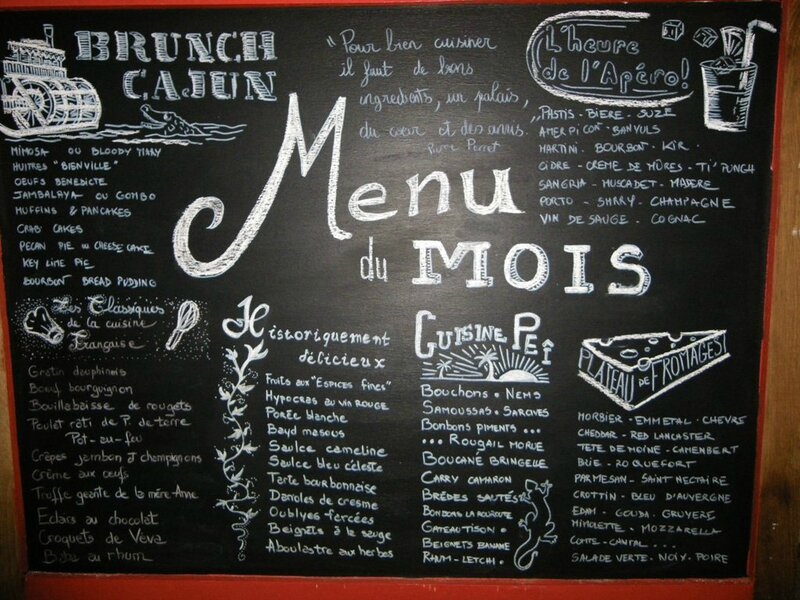 BRUNCH
CAJUN
MIMOSA OU BLOODY MARY
HUITRES "BIENVILLE"
OEUFS BENEDICTE
JAMBALAYA OU GOMBO
MUFFINS & PANCAKES
CRAB CAKES
PECAN PIE ou CHEESE CAKE
KEY LIME PIE
BOURBON BREAD PUDDING
"Pour bien cuisiner
il faut de bons
ingredients, un palais,
du cœur et des amis.
Pierre Perret
L'heure
de l'Apéro!
PASTIS - BIERE - SUZE
AMER PICON - BANYULS
MARTINI - BOURBON - KIR
CIDRE - CREME DE MÛRES - TI' PUNCH
SANGRIA - MUSCADET - MADERE
PORTO - SHERRY - CHAMPAGNE
VIN DE SAUGE - COGNAC
Menu
du MOIS
Les Classiques
de la cuisine
Française
Gratin dauphinois
Boeuf bourguignon
Bouillabaisse de rougets
Poulat rôti de P. de terre
Pot-au-feu
Crêpes jambon & champignons
Crème aux oeufs
Truffe géante de la mère-Anne
Eclairs au chocolat
Croquets de Véva
Baba au rhum
Historiquement
délicieux
Fruits aux "Espices fines"
Hypocras au vin rouge
Porée blanche
Bayd masous
Saulce cameline
Saulce bleu céleste
Tarte bourbonnaise
Darioles de cresme
Oublyes farcées
Beignets à la sauge
Aboulastre aux herbes
CUISINE PEÏ
BOUCHONS • NEMS
SAMOUSSAS - SARCIVES
BONBONS PIMENTS ...
... ROUGAIL MORUE
BOUCANÉ BRINGELLE
CARRY CAMARON
BRÈDES SAUTÉS
BONBONS LA ROUROUTE
GATEAU TISON •
BEIGNETS BANANE
RHUM - LETCHI •
PLATEAU DE FROMAGES!
MORBIER - EMMETAL - CHEVRE
CHEDDAR - RED LANCASTER
TETE DE MOINE - CAMENBERT
BRIE - ROQUEFORT
PARMESAN - SAINT NECTAIRE
CROTTIN - BLEU D'AUVERGNE
EDAM - GOUDA - GRUYERE
MIMOLETTE - MOZZARELLA
COMTE - CANTAL ...
SALADE VERTE - NOIX - POIRE